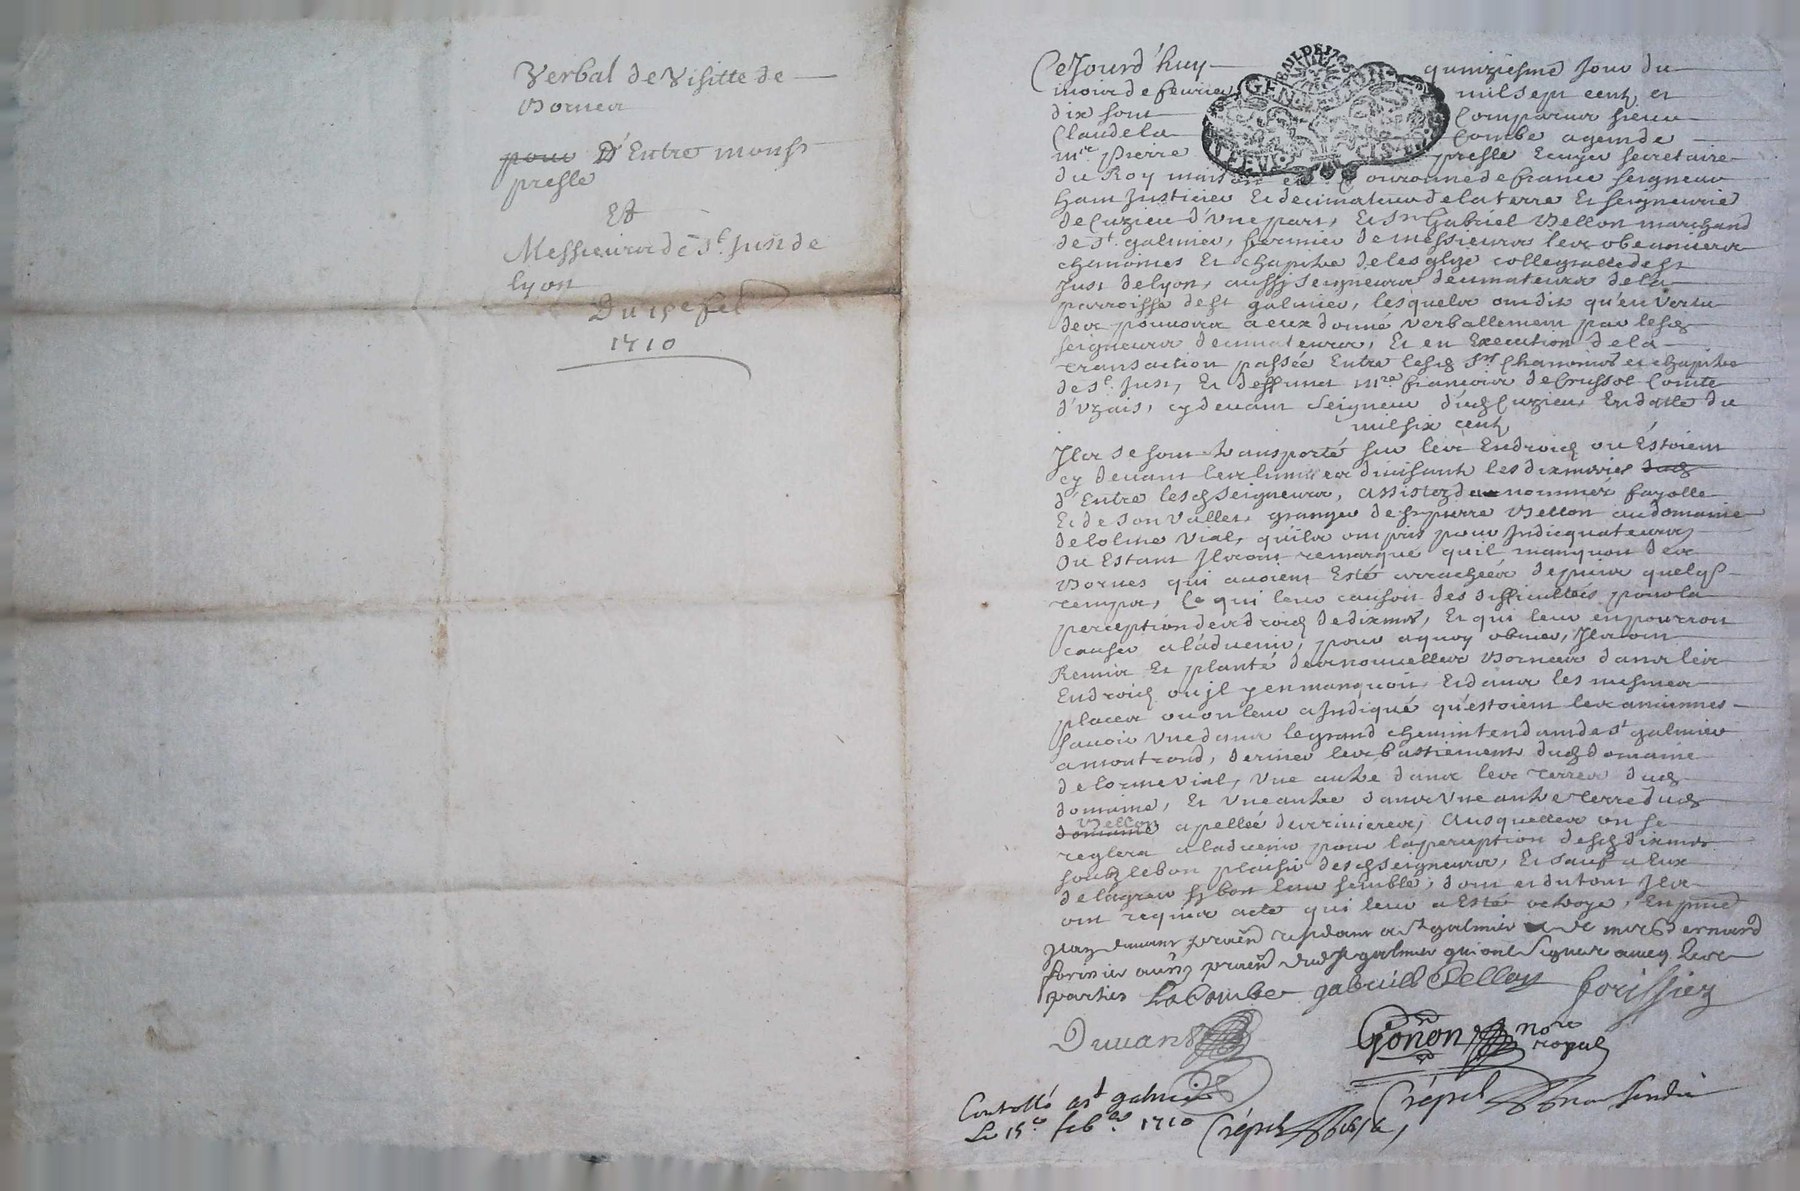 Verbal de Visitte de
Bornes
pour D'Entre monsr
presle
Et
Messieurs de St. Just de
lyon
Du 15e feb
1710
Cejourd'huy quinziesme jour du
mois de feurier mil sept centz et
dix sont Comparus sieur
Claude la Combe agem de
mre pierre presle Ecuyer secretaire
du Roy maison et Couronne de france seigneur
haut Justicier Et decimateur de la terre Et seigneurie
de Cuzieu d'Une part, Et Sr Gabriel Bellon marchand
de St. galmier, fermier de messieurs les obeanciers
chanoines Et chapitre de lesglize collegialle de St
Just de lyon, aussy seigneurs decimateurs de la
parroisse de St galmier, lesquels ont dit qu'en Vertu
des pouvoirs a eux donné verballement par lesd
seigneurs decimateurs, Et en Execution de la
transaction passée Entre lesd Srs Chanoines et chapitre
de St. Just, Et deffunct mre francois de Crussol Comte
d'Uzais, cy devant seigneur dud Cuzieu, En datte du
mil six centz
Ils se sont transporté sur les Endroictz ou Estoient
cy devant les limittes divisant les dixmeries dud
d'Entre lesd seigneurs, assistez du nommé fayolle
Et de son Vallet, granger de Sr pierre Bellon au domaine
de lolme Vial, qu'ils ont pris pour Indicquateurs
Ou Estant Ils ont remarqué qu'il manquoit des
Bornes qui avoient Esté arrachées depuis quelq
temps, Ce qui leur causoit des difficultés pour la
perception des droictz de dixmes, Et qui leur en pourroit
causer a ladvenir, pour a quoy obvier, Ils ont
Remis Et planté des nouvelles Bornes dans les
Endroictz ou il y en manquoit, Et dans les mesmes
places ou on leur a Indiqué qu'estoient les anciennes
scavoir Une dans le grand chemin tendant de St galmier
a montrond, derrier les bastiement dud domaine
de lorme Vial, Une autre dans les terres dud
domaine, Et Une autre dans Une autre terre dud
Bellon
domaine apellée des rivieres, Ausquelles on se
reglera a ladvenir pour la perception desd dixmes
soubz le bon plaisir desd seigneurs, Et sauf a Eux
de lagreer sy bon leur semble, dont et du tout Ils
ont requis acte qui leur a Esté octroyé, En pnce
Jean duvant praen residant a St galmier Et de mre Bernard
forissier aussy praen dud St galmier qui ont Signer avecq Les
parties LaCombe gabriel Bellon forissier
Duvant Gonon nore
royal
Controllé a St galmier
Le 15e feb 1710 Crépet
Crépet